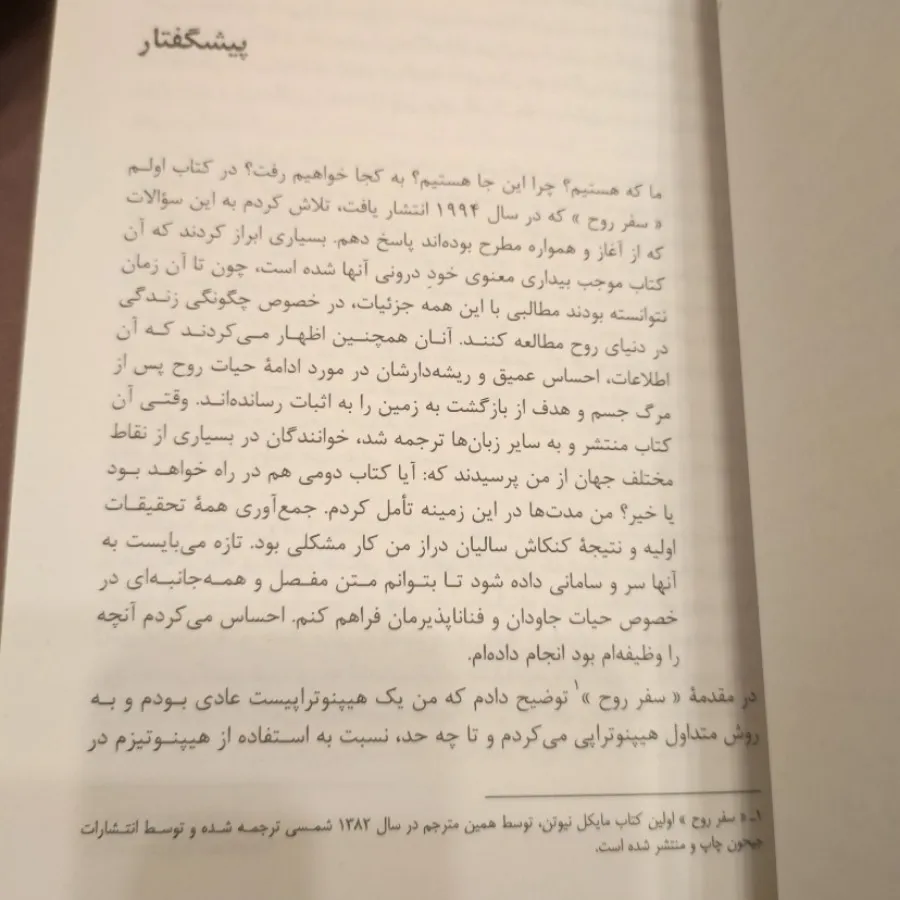 پیشگفتار
ما که هستیم؟ چرا این جا هستیم؟ به کجا خواهیم رفت؟ در کتاب اولم
« سفر روح » که در سال ۱۹۹۴ انتشار یافت، تلاش کردم به این سؤالات
که از آغاز و همواره مطرح بوده‌اند پاسخ دهم. بسیاری ابراز کردند که آن
کتاب موجب بیداری معنوی خودِ درونی آنها شده است، چون تا آن زمان
نتوانسته بودند مطالبی با این همه جزئیات، در خصوص چگونگی زندگی
در دنیای روح مطالعه کنند. آنان همچنین اظهار می‌کردند که آن
اطلاعات، احساس عمیق و ریشه‌دارشان در مورد ادامهٔ حیات روح پس از
مرگ جسم و هدف از بازگشت به زمین را به اثبات رسانده‌اند. وقتی آن
کتاب منتشر و به سایر زبان‌ها ترجمه شد، خوانندگان در بسیاری از نقاط
مختلف جهان از من پرسیدند که: آیا کتاب دومی هم در راه خواهد بود
یا خیر؟ من مدت‌ها در این زمینه تأمل کردم. جمع‌آوری همهٔ تحقیقات
اولیه و نتیجهٔ کنکاش سالیان دراز من کار مشکلی بود. تازه می‌بایست به
آنها سر و سامانی داده شود تا بتوانم متن مفصل و همه‌جانبه‌ای در
خصوص حیات جاودان و فناناپذیرمان فراهم کنم. احساس می‌کردم آنچه
را وظیفه‌ام بود انجام داده‌ام.
در مقدمهٔ « سفر روح »۱ توضیح دادم که من یک هیپنوتراپیست عادی بودم و به
روش متداول هیپنوتراپی می‌کردم و تا چه حد، نسبت به استفاده از هیپنوتیزم در
۱ـ « سفر روح » اولین کتاب مایکل نیوتن، توسط همین مترجم در سال ۱۳۸۲ شمسی ترجمه شده و توسط انتشارات
جیحون چاپ و منتشر شده است.